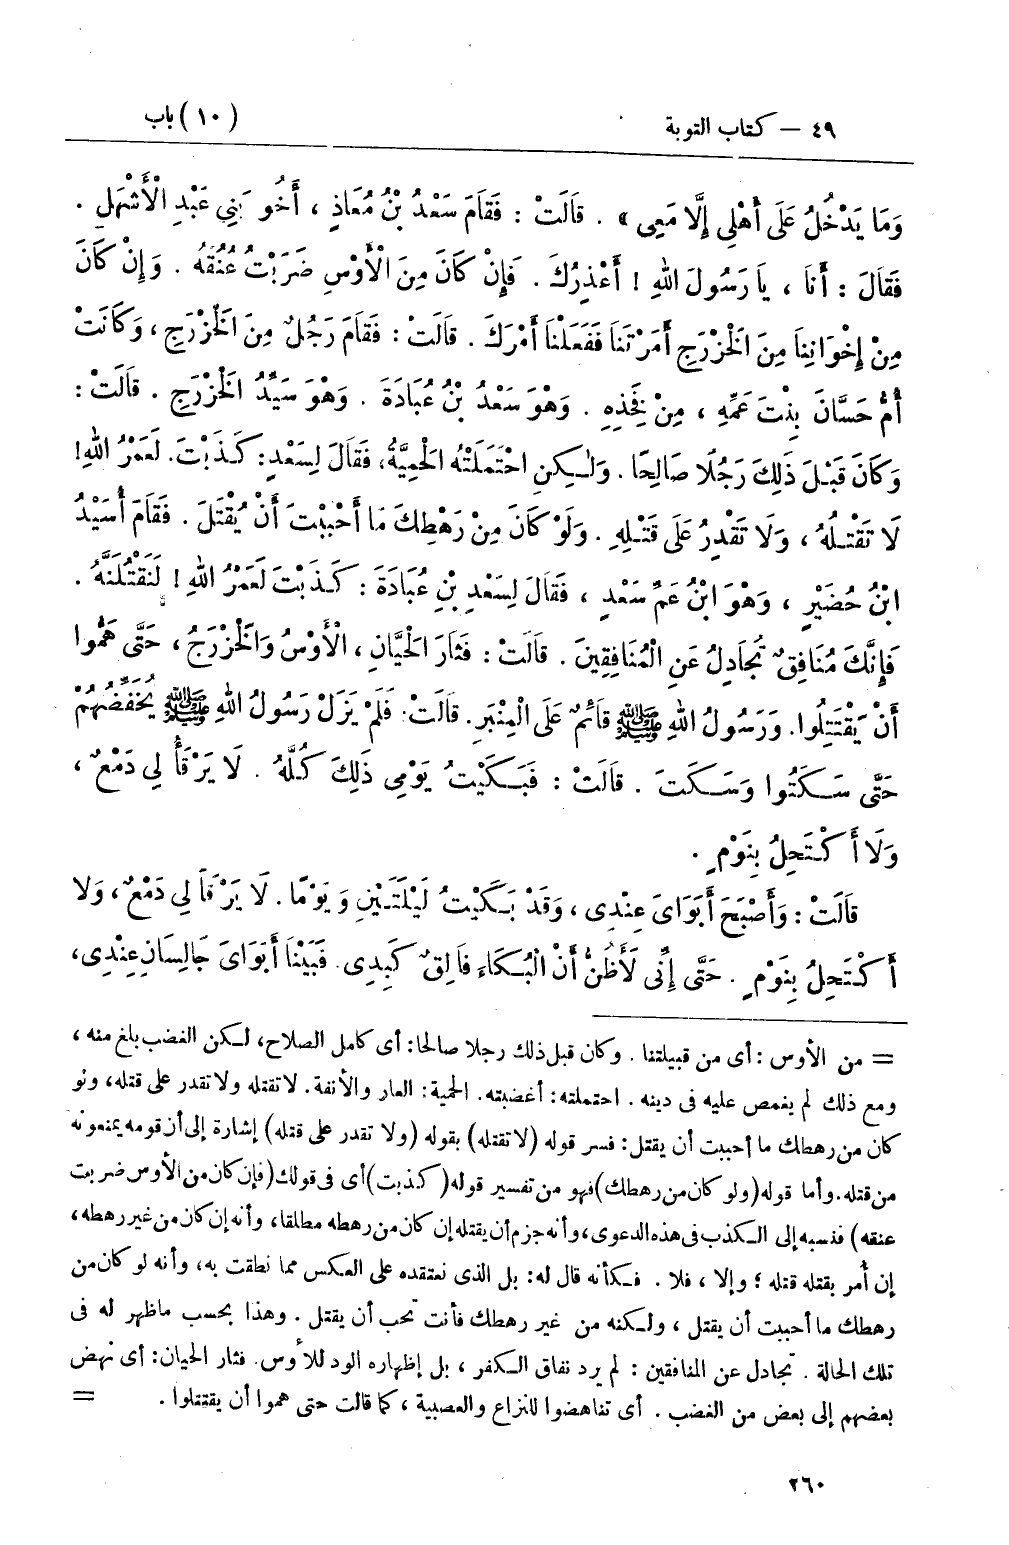 ٤٩ – كتاب التوبة (١٠) باب
وَمَا يَدْخُلُ عَلَى أَهْلِى إِلَّا مَعِى » . قَالَتْ : فَقَامَ سَعْدُ بْنُ مُعَاذٍ ، أَخُو بَنِي عَبْدِ الْأَشْهَلِ .
فَقَالَ : أَنَا ، يَا رَسُولَ اللهِ ! أَعْذِرُكَ . فَإِنْ كَانَ مِنَ الْأَوْسِ ضَرَبْتُ عُنُقَهُ . وَإِنْ كَانَ
مِنْ إِخْوَانِنَا مِنَ الْخَزْرَجِ أَمَرْتَنَا فَفَعَلْنَا أَمْرَكَ . قَالَتْ : فَقَامَ رَجُلٌ مِنَ الْخَزْرَجِ ، وَكَانَتْ
أُمُّ حَسَّانَ بِنْتَ عَمِّهِ ، مِنْ فَخِذِهِ . وَهْوَ سَعْدُ بْنُ عُبَادَةَ . وَهْوَ سَيِّدُ الْخَزْرَجِ . قَالَتْ :
وَكَانَ قَبْلَ ذَلِكَ رَجُلًا صَالِحًا . وَلَٰكِنِ احْتَمَلَتْهُ الْحَمِيَّةُ ، فَقَالَ لِسَعْدٍ : كَذَبْتَ . لَعَمْرُ اللهِ!
لَا تَقْتُلُهُ ، وَلَا تَقْدِرُ عَلَى قَتْلِهِ . وَلَوْ كَانَ مِنْ رَهْطِكَ مَا أَحْبَبْتَ أَنْ يُقْتَلَ . فَقَامَ أُسَيْدُ
ابْنُ حُضَيْرٍ ، وَهْوَ ابْنُ عَمِّ سَعْدٍ ، فَقَالَ لِسَعْدِ بْنِ عُبَادَةَ : كَذَبْتَ لَعَمْرُ اللهِ ! لَنَقْتُلَنَّهُ .
فَإِنَّكَ مُنَافِقٌ تُجَادِلُ عَنِ الْمُنَافِقِينَ . قَالَتْ : فَثَارَ الْحَيَّانِ ، الْأَوْسُ وَالْخَزْرَجُ ، حَتَّى هَمُّوا
أَنْ يَقْتَتِلُوا. وَرَسُولُ اللهِ ﷺ قَائِمٌ عَلَى الْمِنْبَرِ. قَالَتْ: فَلَمْ يَزَلْ رَسُولُ اللهِ ﷺ يُخَفِّضُهُمْ
حَتَّى سَكَتُوا وَسَكَتَ . قَالَتْ : فَبَكَيْتُ يَوْمِى ذَلِكَ كُلَّهُ . لَا يَرْقَأُ لِي دَمْعٌ ،
وَلَا أَكْتَحِلُ بِنَوْمٍ .
قَالَتْ : وَأَصْبَحَ أَبَوَاىَ عِنْدِى ، وَقَدْ بَكَيْتُ لَيْلَتَيْنِ وَيَوْمًا . لَا يَرْقَأُ لِي دَمْعٌ ، وَلَا
أَكْتَحِلُ بِنَوْمٍ . حَتَّى إِنِّى لَأَظُنُّ أَنَّ الْبُكَاءَ فَالِقٌ كَبِدِى. فَبَيْنَا أَبَوَاىَ جَالِسَانِ عِنْدِى،
= من الأوس : أى من قبيلتنا . وكان قبل ذلك رجلا صالحا: أى كامل الصلاح، لكن الغضب بلغ منه ،
ومع ذلك لم يغمص عليه فى دينه . احتملته: أغضبته. الحمية: العار والأنفة. لا تقتله ولا تقدر على قتله، ولو
كان من رهطك ما أحببت أن يقتل: فسر قوله (لا تقتله) بقوله (ولا تقدر على قتله) إشارة إلى أن قومه يمنعونه
من قتله. وأما قوله (ولو كان من رهطك) فهو من تفسير قوله (كذبت) أى فى قولك (فإن كان من الأوس ضربت
عنقه) فنسبه إلى الكذب فى هذه الدعوى، وأنه جزم أن يقتله إن كان من رهطه مطلقا، وأنه إن كان من غير رهطه،
إن أُمر بقتله قتله ؛ وإلا ، فلا . فكأنه قال له: بل الذى نعتقده على العكس مما نطقت به، وأنه لو كان من
رهطك ما أحببت أن يقتل ، ولكنه من غير رهطك فأنت تحب أن يقتل . وهذا بحسب ماظهر له فى
تلك الحالة . تجادل عن المنافقين : لم يرد نفاق الكفر ، بل إظهاره الود للأوس. فثار الحيان: أى نهض
بعضهم إلى بعض من الغضب . أى تفاهضوا للنزاع والعصبية ، كما قالت حتى هموا أن يقتتلوا . =
٢٦٠